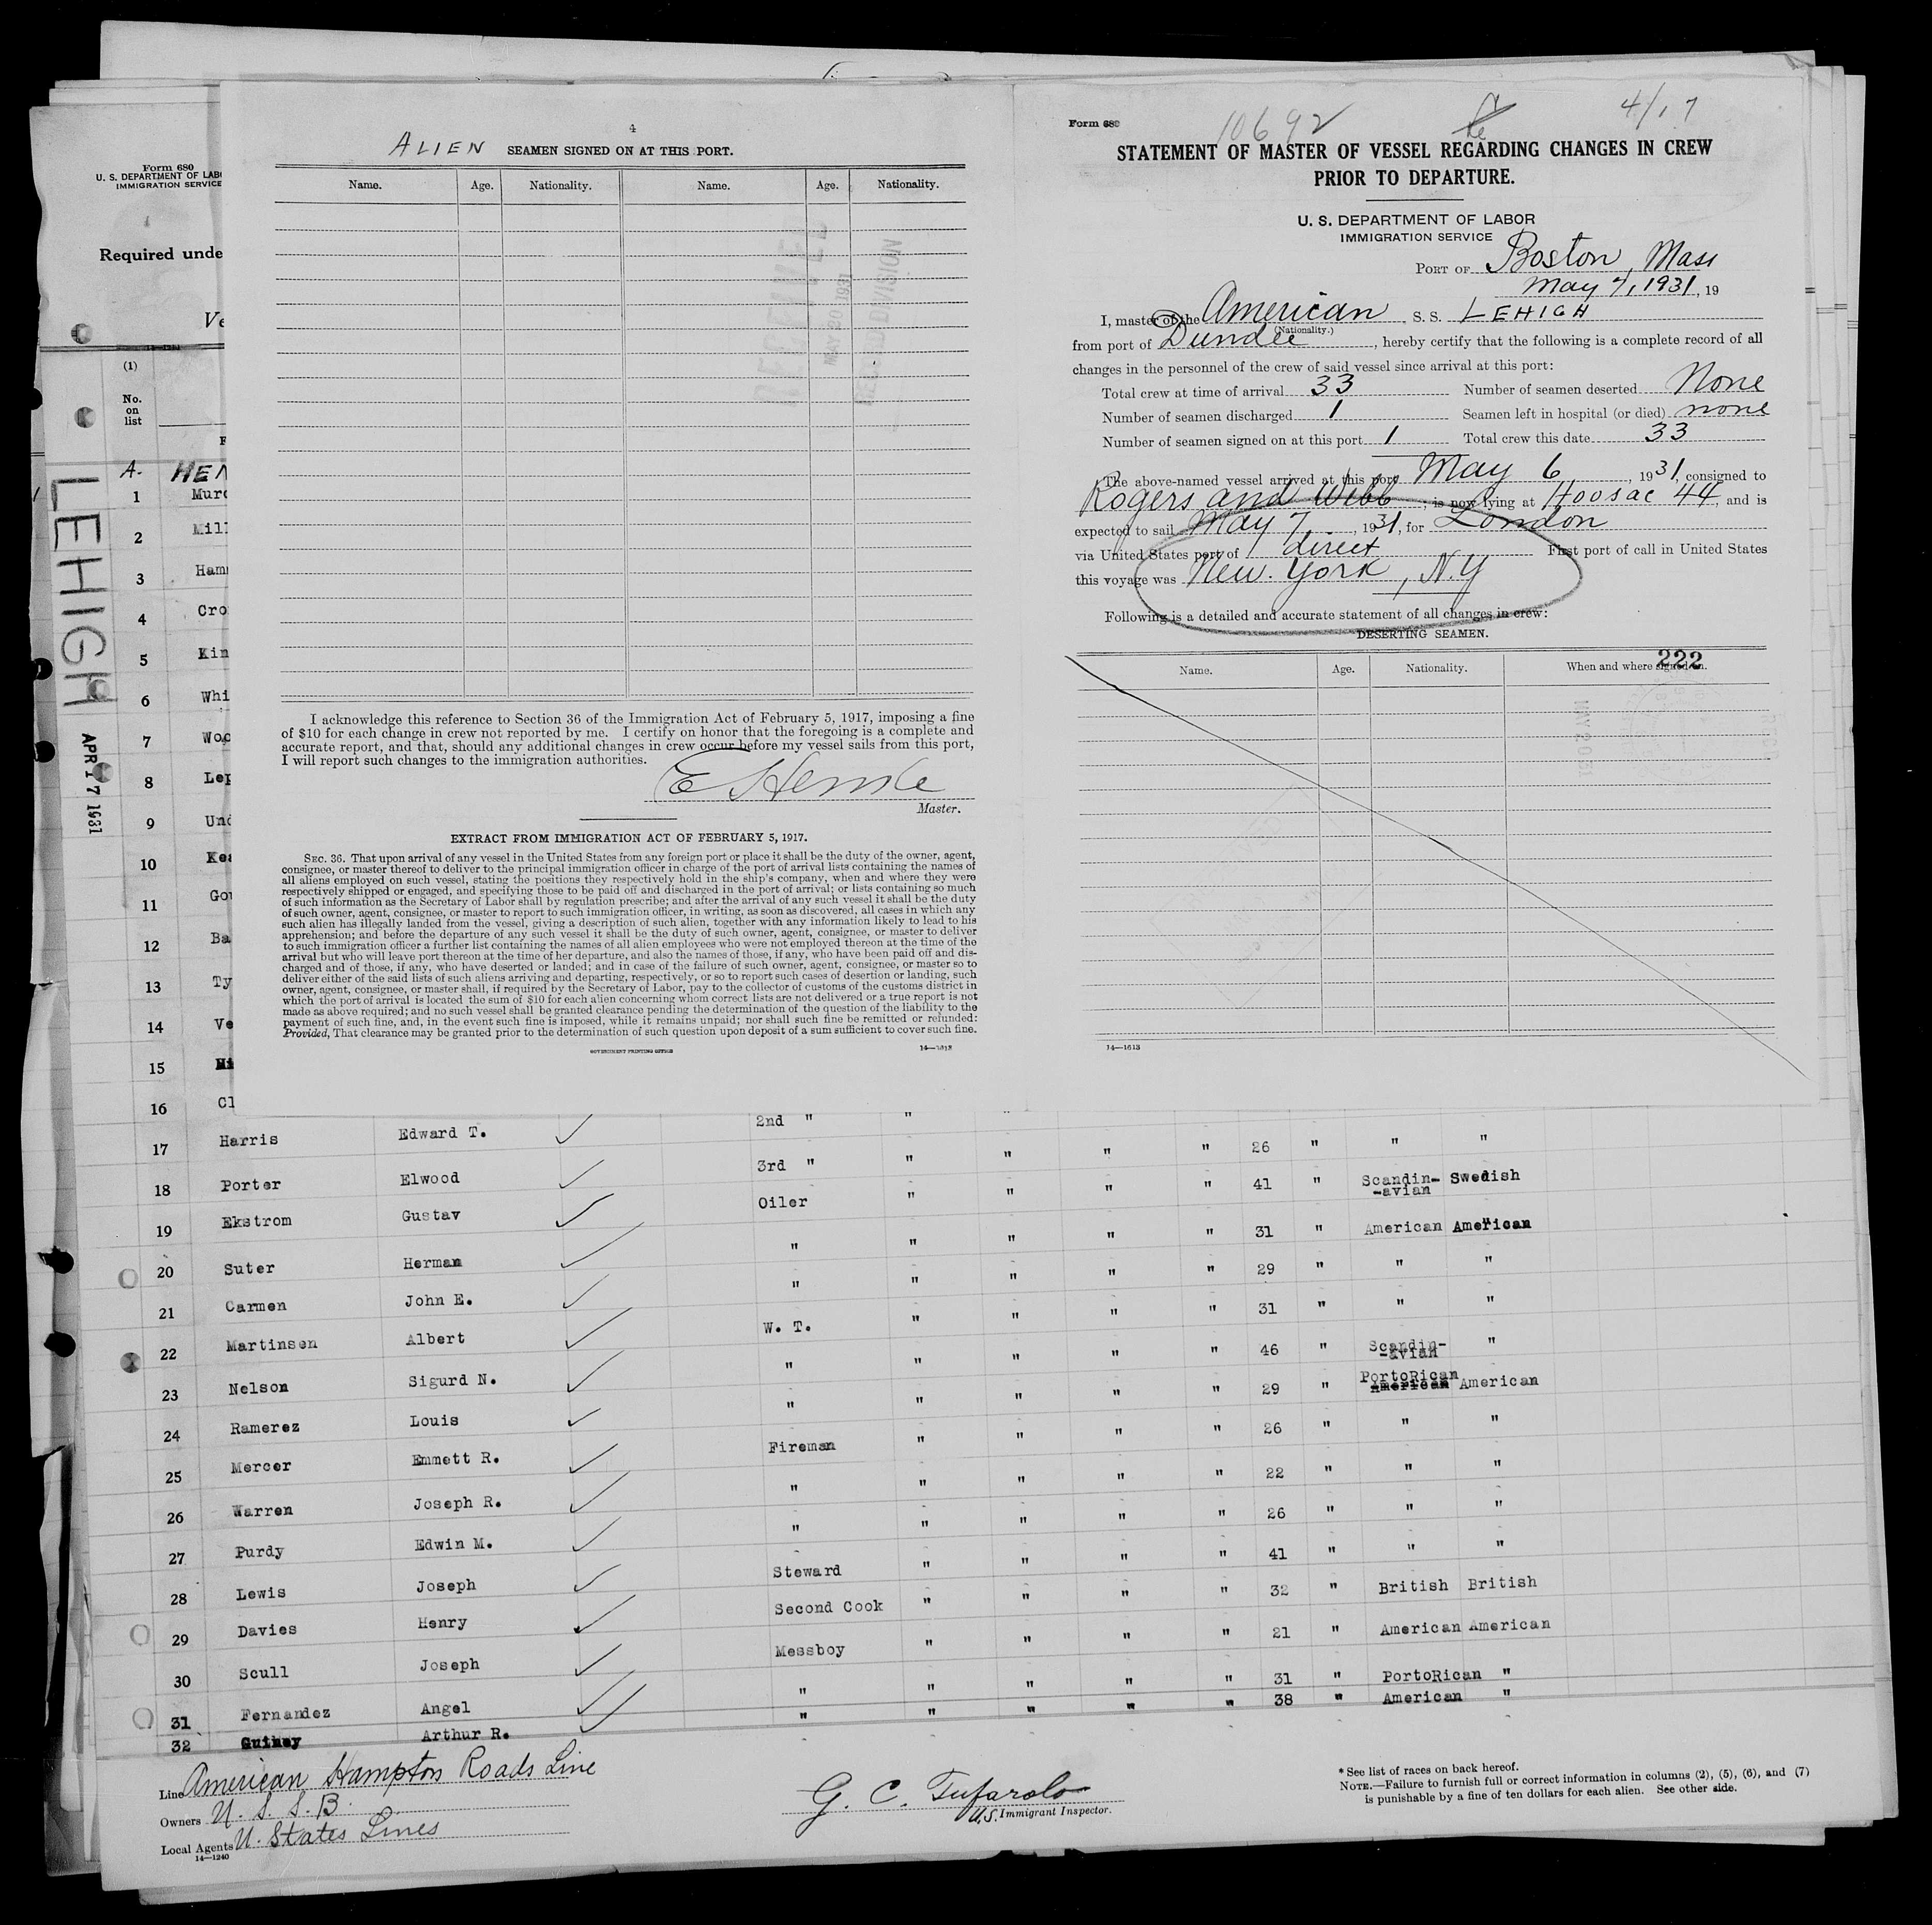 Form 680
U. S. DEPARTMENT OF LAB
IMMIGRATION SERVICE
Required unde
Ve
(1)
No.
on
list
F
LEHIGH
APR 17 1931
A- HEN
1 Murd
2 Mill
3 Ham
4 Cro
5 Kin
6 Whi
7 Woo
8 Lep
9 Und
10 Kea
11 Gou
12 Ba
13 Ty
14 Ve
15 Hi
16 Cl
4
ALIEN SEAMEN SIGNED ON AT THIS PORT.
Name. Age. Nationality. Name. Age. Nationality.
RECEIVED
MAY 20 1931
RECORD DIVISION
I acknowledge this reference to Section 36 of the Immigration Act of February 5, 1917, imposing a fine
of $10 for each change in crew not reported by me. I certify on honor that the foregoing is a complete and
accurate report, and that, should any additional changes in crew occur before my vessel sails from this port,
I will report such changes to the immigration authorities.
Master.
EXTRACT FROM IMMIGRATION ACT OF FEBRUARY 5, 1917.
SEC. 36. That upon arrival of any vessel in the United States from any foreign port or place it shall be the duty of the owner, agent,
consignee, or master thereof to deliver to the principal immigration officer in charge of the port of arrival lists containing the names of
all aliens employed on such vessel, stating the positions they respectively hold in the ship's company, when and where they were
respectively shipped or engaged, and specifying those to be paid off and discharged in the port of arrival; or lists containing so much
of such information as the Secretary of Labor shall by regulation prescribe; and after the arrival of any such vessel it shall be the duty
of such owner, agent, consignee, or master to report to such immigration officer, in writing, as soon as discovered, all cases in which any
such alien has illegally landed from the vessel, giving a description of such alien, together with any information likely to lead to his
apprehension; and before the departure of any such vessel it shall be the duty of such owner, agent, consignee, or master to deliver
to such immigration officer a further list containing the names of all alien employees who were not employed thereon at the time of the
arrival but who will leave port thereon at the time of her departure, and also the names of those, if any, who have been paid off and dis-
charged and of those, if any, who have deserted or landed; and in case of the failure of such owner, agent, consignee, or master so to
deliver either of the said lists of such aliens arriving and departing, respectively, or so to report such cases of desertion or landing, such
owner, agent, consignee, or master shall, if required by the Secretary of Labor, pay to the collector of customs of the customs district in
which the port of arrival is located the sum of $10 for each alien concerning whom correct lists are not delivered or a true report is not
made as above required; and no such vessel shall be granted clearance pending the determination of the question of the liability to the
payment of such fine, and, in the event such fine is imposed, while it remains unpaid; nor shall such fine be remitted or refunded:
Provided, That clearance may be granted prior to the determination of such question upon deposit of a sum sufficient to cover such fine.
GOVERNMENT PRINTING OFFICE 14—1613
Form 680
10692 4/17
STATEMENT OF MASTER OF VESSEL REGARDING CHANGES IN CREW
PRIOR TO DEPARTURE.
U. S. DEPARTMENT OF LABOR
IMMIGRATION SERVICE
PORT OF Boston, Mass
May 7, 1931, 19
I, master of the American S. S. LEHIGH
(Nationality.)
from port of Dundee, hereby certify that the following is a complete record of all
changes in the personnel of the crew of said vessel since arrival at this port:
Total crew at time of arrival 33 Number of seamen deserted None
Number of seamen discharged 1 Seamen left in hospital (or died) none
Number of seamen signed on at this port 1 Total crew this date 33
The above-named vessel arrived at this port May 6, 1931, consigned to
Rogers and Webb, is now lying at Hoosac 44, and is
expected to sail May 7, 1931, for London
via United States port of direct First port of call in United States
this voyage was New York, N.Y
Following is a detailed and accurate statement of all changes in crew:
DESERTING SEAMEN.
222
Name. Age. Nationality. When and where signed on.
14—1613
2nd " " "
17 Harris Edward T. 3rd " " " " " 26 " " "
18 Porter Elwood Oiler " " " " 41 " Scandin-
-avian Swedish
19 Ekstrom Gustav " " " " " 31 " American American
20 Suter Herman " " " " " 29 " " "
21 Carmen John E. W. T. " " " " 31 " " "
22 Martinsen Albert " " " " " 46 " Scandin-
-avian "
23 Nelson Sigurd N. " " " " " 29 " PortoRican
American American
24 Ramerez Louis Fireman " " " " 26 " " "
25 Mercer Emmett R. " " " " " 22 " " "
26 Warren Joseph R. " " " " " 26 " " "
27 Purdy Edwin M. Steward " " " " 41 " " "
28 Lewis Joseph Second Cook " " " " 32 " British British
29 Davies Henry Messboy " " " " 21 " American American
30 Scull Joseph " " " " " 31 " PortoRican "
31 Fernandez Angel " " " " " 38 " American "
32 Guihey Arthur R.
Line American Hampton Roads Line
Owners U. S. S. B.
Local Agents U. States Lines
14—1240
G. C. Tufarolo
U.S. Immigrant Inspector.
* See list of races on back hereof.
NOTE.—Failure to furnish full or correct information in columns (2), (5), (6), and (7)
is punishable by a fine of ten dollars for each alien. See other side.